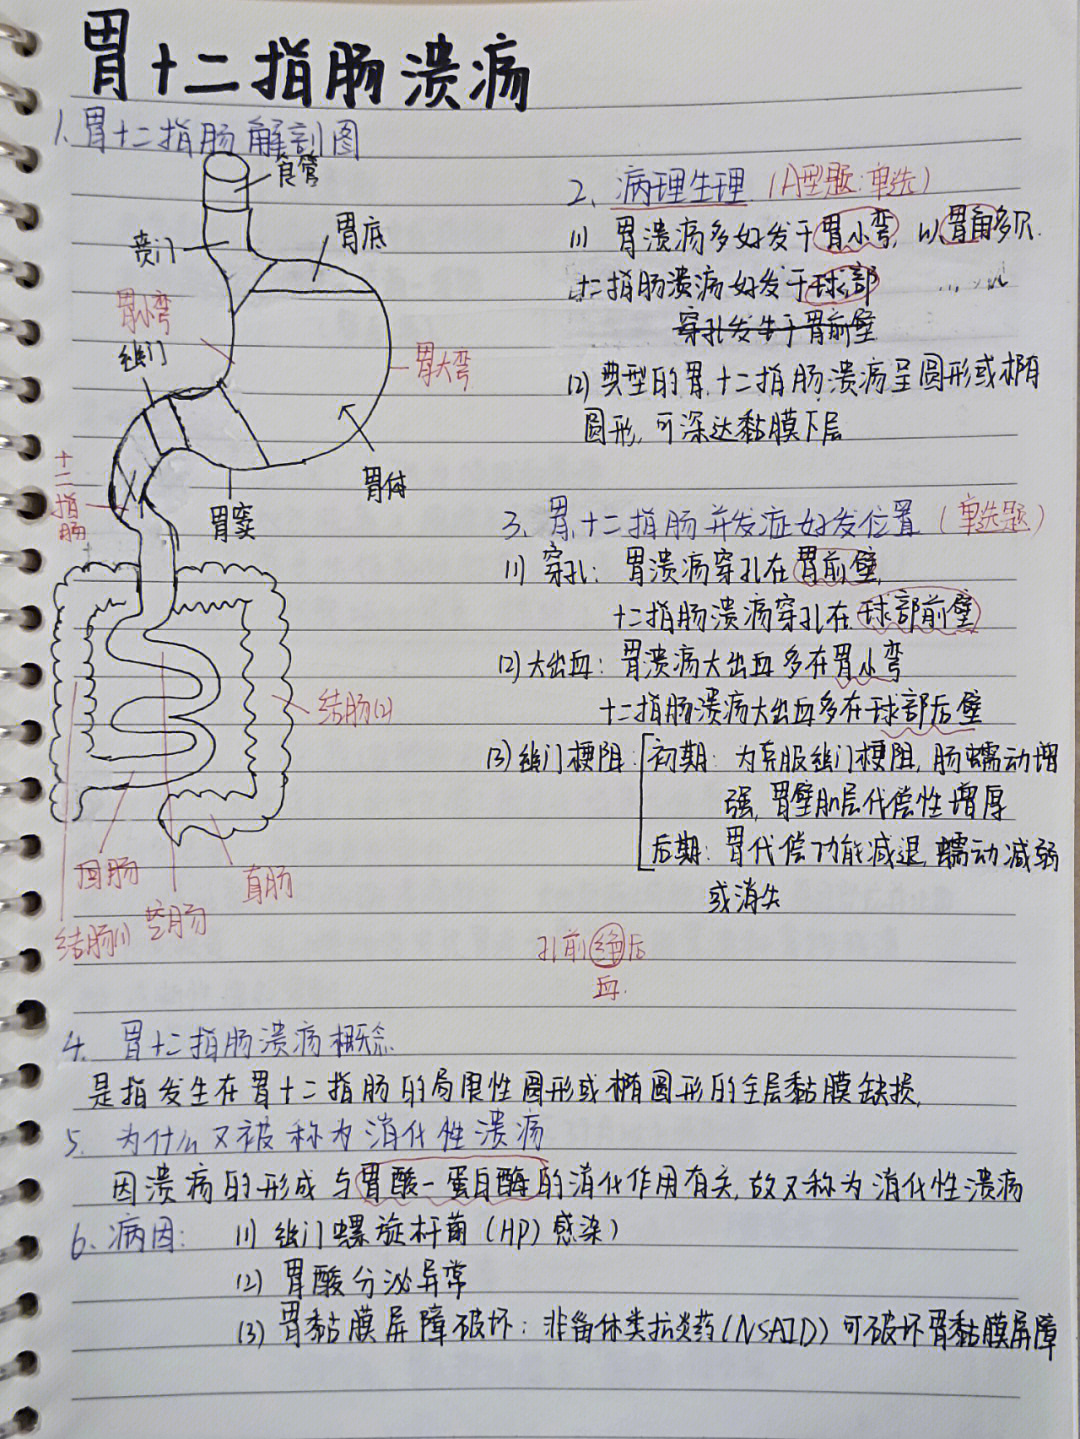 胃十二指肠溃疡
1.胃十二指肠解剖图
食管
贲门
胃底
胃小弯
幽门
胃大弯
十二指肠
胃体
胃窦
结肠(2)
回肠
直肠
结肠(1)
空肠
2、病理生理(A型题:单选)
(1) 胃溃疡多好发于胃小弯,以胃角多见.
十二指肠溃疡好发于球部
穿孔发生于胃前壁
(2) 典型的胃.十二指肠溃疡呈圆形或椭
圆形,可深达黏膜下层
3、胃.十二指肠并发症好发位置(单选题)
(1) 穿孔:胃溃疡穿孔在胃前壁,
十二指肠溃疡穿孔在球部前壁
(2) 大出血:胃溃疡大出血多在胃小弯
十二指肠溃疡大出血多在球部后壁
(3) 幽门梗阻:初期:为克服幽门梗阻,肠蠕动增
强,胃壁肌层代偿性增厚
后期:胃代偿功能减退,蠕动减弱
或消失
孔前绝后
血.
4. 胃十二指肠溃疡概念
是指发生在胃十二指肠的局限性圆形或椭圆形的全层黏膜缺损.
5. 为什么又被称为消化性溃疡
因溃疡的形成与胃酸-蛋白酶的消化作用有关,故又称为消化性溃疡
6、病因: (1) 幽门螺旋杆菌(HP)感染)
(2) 胃酸分泌异常
(3) 胃黏膜屏障破坏:非甾体类抗炎药(NSAID)可破坏胃黏膜屏障